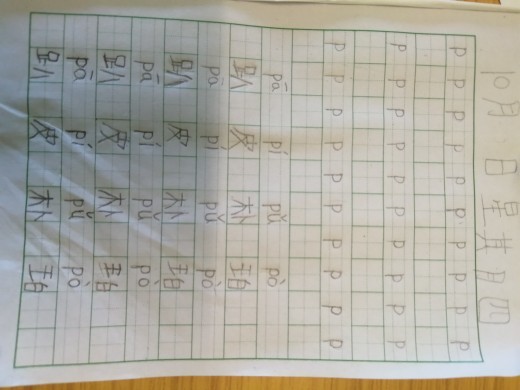 10月 日 星期四
p p p p p p p p p p
p p p p p p p p p p
p p p p p p p p p p
pā pí pǔ pò
趴 皮 朴 珀
pā pí pǔ pò
趴 皮 朴 珀
pā pí pǔ pò
趴 皮 朴 珀
pā pí pǔ pò
趴 皮 朴 珀